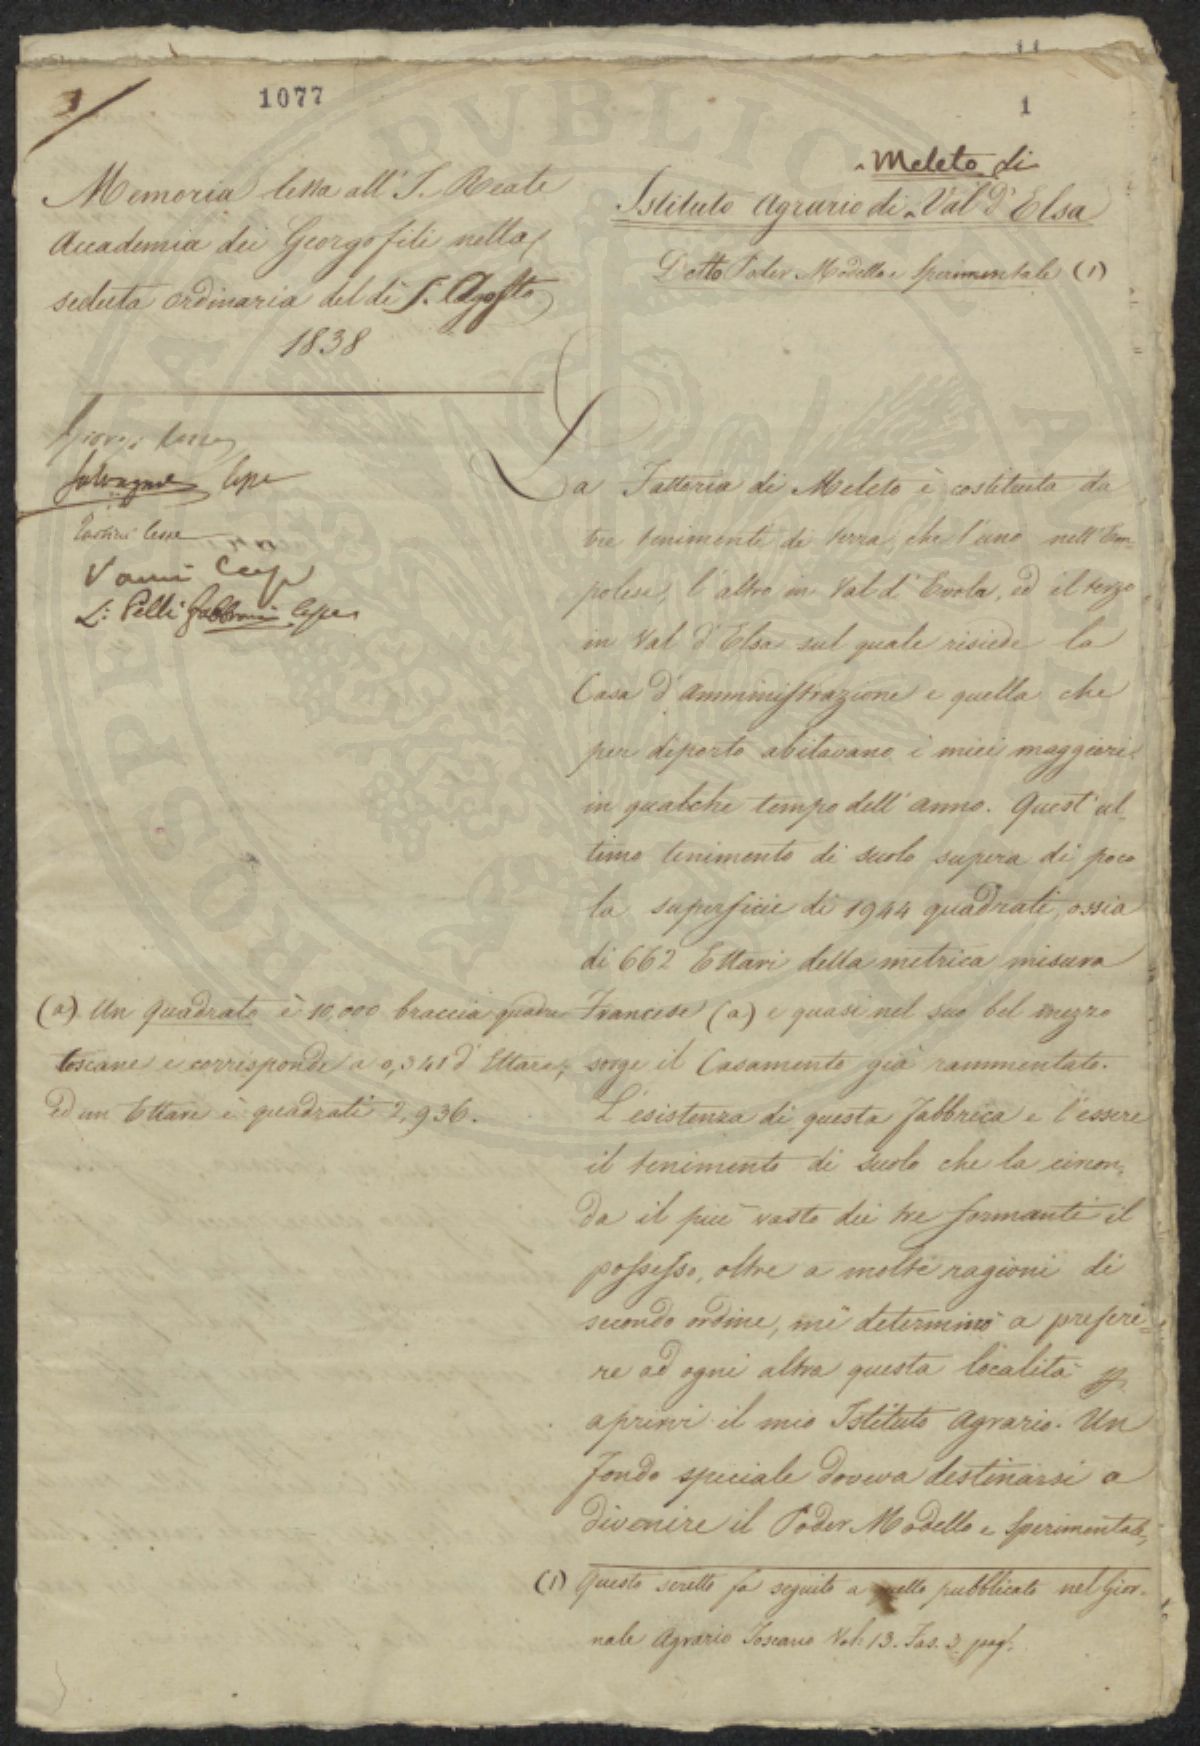 1077
1
Memoria letta all' I. Reale
Accademia dei Georgofili nella
seduta ordinaria del dì 5. Agosto
1838
Salvagnoli
Vanni
L: Pelli Fabbroni
Meleto di
Istituto Agrario di Val d'Elsa
Detto Poder Modello e Sperimentale (1)
La Fattoria di Meleto è costituita da
tre tenimenti di terra, che l'uno nell'Em-
polese, l'altro in Val d'Evola, ed il terzo
in Val d'Elsa sul quale risiede la
Casa d'Amministrazione e quella che
per diporto abitavano i miei maggiori
in qualche tempo dell'anno. Quest'ul-
timo tenimento di suolo supera di poco
la superficie di 1944 quadrati, ossia
di 662 Ettari della metrica misura
Francese (a) e quasi nel suo bel mezzo
sorge il Casamento già rammentato.
L'esistenza di questa Fabbrica e l'essere
il tenimento di suolo che la circon-
da il più vasto dei tre formanti il
possesso, oltre a molte ragioni di
secondo ordine, mi determinò a preferi-
re ad ogni altra questa località
aprirvi il mio Istituto Agrario. Un
fondo speciale doveva destinarsi a
divenire il Poder Modello e Sperimentale,
(a) Un quadrato è 10,000 braccia quadre
toscane e corrisponde a 0,341 d'Ettare,
ed un Ettare è quadrati 2,936.
(1) Questo scritto fa seguito a quello pubblicato nel Gior-
nale Agrario Toscano Vol: 13. Fas. 3. pag.
PVBLICA